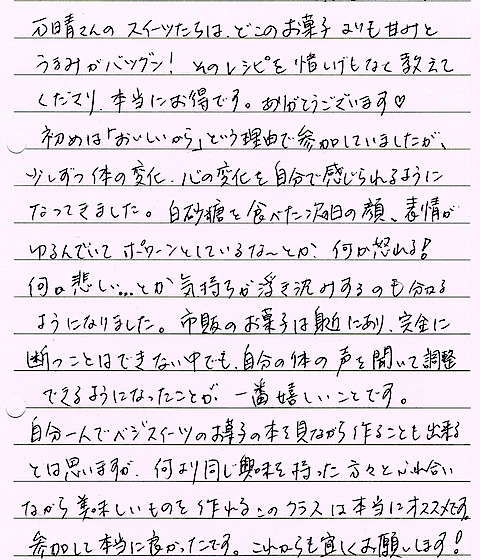 万晴さんの スイーツたちは、どこのお菓子 よりも甘みと
うまみがバツグン! そのレシピを 惜しげもなく 教えて
くださり、本当にお得です。ありがとうございます♡
初めは「おいしいから」という理由で参加していましたが、
少しずつ体の変化、心の変化を自分で感じられるように
なってきました。白砂糖を食べた次の日の顔、表情が
ゆるんでいて ボワーンとしているな〜とか、何か怒れる!
何か悲しい…とか 気持ちが浮き沈みするのも分かる
ようになりました。市販のお菓子は身近にあり、完全に
断つことはできない中でも、自分の体の声を聞いて調整
できるようになったことが、一番嬉しいことです。
自分一人でベジスイーツのお菓子の本を見ながら作ることも出来る
とは思いますが、何より同じ興味を持った方々とふれ合い
ながら美味しいものを作れるこのクラスは本当にオススメです。
参加して本当に良かったです。これからも宜しくお願いします!